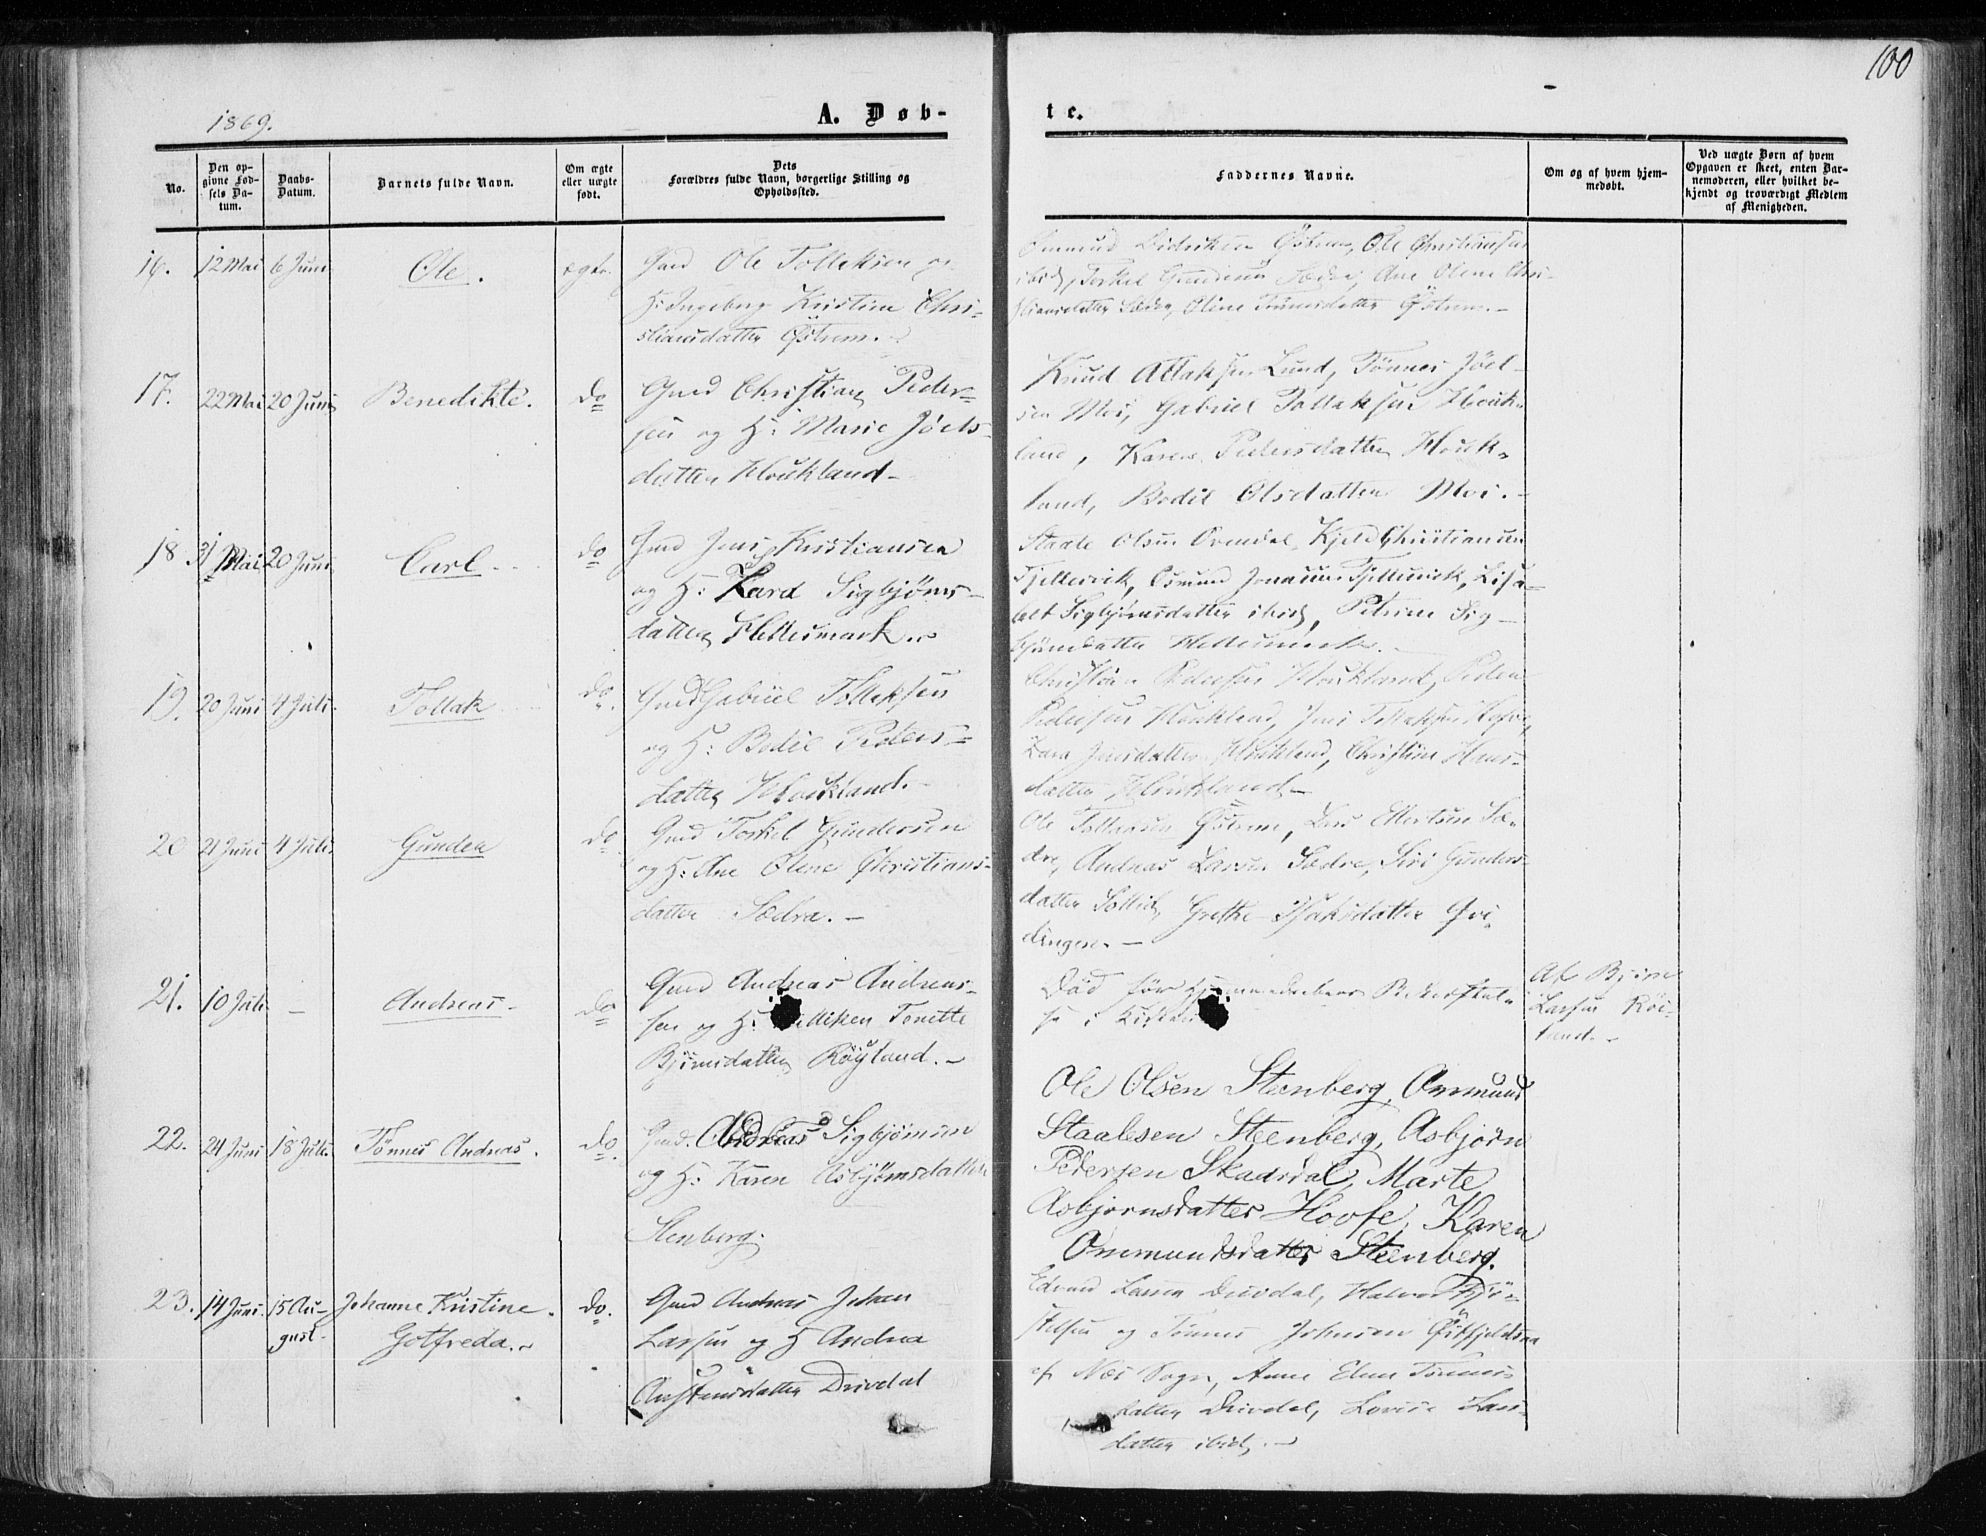 100
1869.
A. Døb-
te.
No.
Den op-
givne Fød-
sels Da-
tum.
Daabs-
Datum.
Barnets fulde Navn.
Om ægte
eller uægte
født.
Dets
Forældres fulde Navn, borgerlige Stilling og
Opholdssted.
Faddernes Navne.
Om og af hvem hjem-
medøbt.
Ved uægte Børn af hvem
Opgaven er skeet, enten Bar-
nemoderen, eller hvilket be-
kjendt og troværdigt Medlem
af Menigheden.
16.
12 Mai
6 Juni
Ole.
ægte.
Gmd Ole Tolleksen og
H: Ingeborg Kristine Chri-
stiansdatter Østrem.
Ommund Østrem, Ole Christiansen
ibid, Torkel Gundersen Sædre, Ane Olene Chri-
stiansdatter Sædre, Østrem.-
17.
22 Mai
20 Juni
Benedikte.
do
Gmd Christian Peder-
sen og H: Marie Joels-
datter Houkland-
Knud Attaksen Lund, Tønnes Joel-
sen Moi, Gabriel Tollaksen Houk-
land, Karen Pedersdatter Houk-
land, Bodil Olsdatter Moi.-
18
31 Mai
20 Juni
Carl
do
Gmd Jens Kristiansen
og H: Zara Sigbjørns-
datter Hettesmark..
Staale Olsen Ovendal, Kjeld Christiansen
Fjellesvick, Osmund Jonassen Fjellesvick, Lisa-
bet Sigbjørnsdatter ibid, Petrine Sig-
bjørnsdatter Hettesmark.-
19.
20 Juni
4 Juli.
Tollak
do.
Gmd Gabriel Tollaksen
og H: Bodil Peders-
datter Houkland.
Christian Pedersen Houkland, Peder
Pedersen Houkland, Jens Tollaksen Hofve,
Zara Jensdatter Houkland, Christine Hans-
datter Houkland-
20
21 Juni
4 Juli.
Gundea
do.
Gmd Torkel Gundersen
og H: Ane Olene Christians-
datter Sædra.-
Ole Tolleksen Østrem, Lars Ellertsen Sæ-
dre, Andreas Larsen Sædre, Siri Gunders-
datter Sollid, Grethe Isaksdatter Qvi-
dingen.-
21.
10 Juli
-
Andreas-
do
Gmd Andreas Andreas-
sen og H: Tonette
Bjørnsdatter Røyland.-
Død før Hjemmedaabens Bekræftel-
se i Kirken
Af Bjørn
Larsen Röi-
land.-
22.
24 Juni
18 Juli.
Tønnes Andreas.
do.
Gmd. Andreas Sigbjørnsen
og H: Karen Asbjørnsdatter
Stenberg.
Ole Olsen Steenberg, Ommund
Staalesen Steenberg, Asbjørn
Pedersen Skaardal, Marte
Asbjørnsdatter Hovfe, Karen
Ommundsdatter Steenberg.
23.
14 Juni.
15 Au-
gust.
Johanne Kristine
Gotfreda.
do.
Gmd Andreas Johan
Larsen og H Andrea
Austensdatter Drivdal
Edvard Larsen Drivdal, Halvor
og Tønnes Johnsen
af Næs Sogn, Anne Elene Tønnes-
datter Drivdal, Lovise Lars-
datter ibid.-